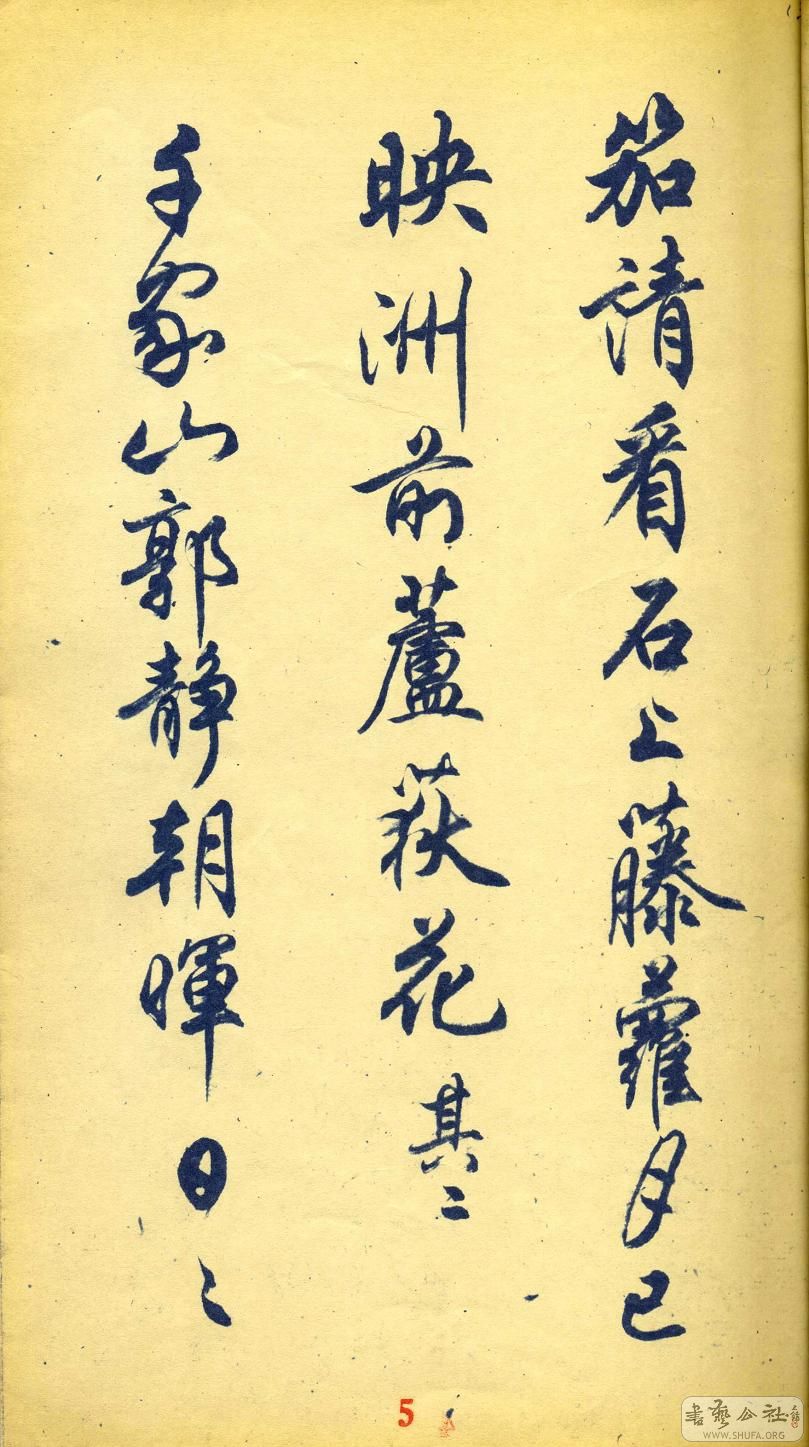 笳請看石上藤蘿月已
映洲前蘆荻花其二
千家山郭靜朝暉日〻
5
書藝公社
WWW.SHUFA.ORG